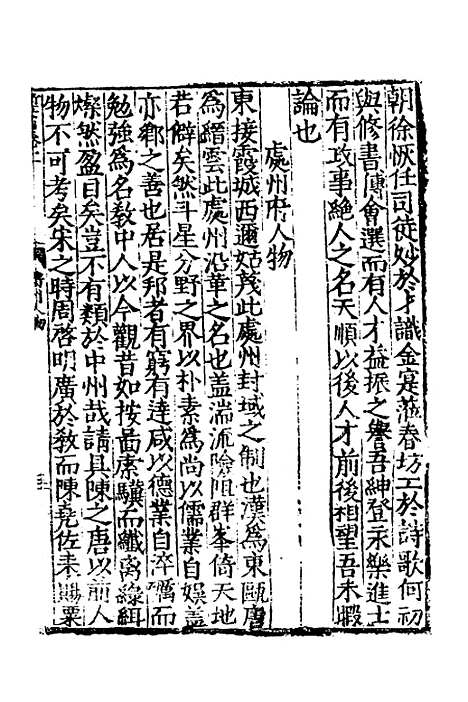 朝徐恢任司徒妙於才識金寔蒞春坊工於詩歌何初
與修書傳會選而有人才益振之譽吾紳登永樂進士
而有政事絕人之名天順以後人才前後相望吾未暇
論也
處州府人物
東接霞城西邇姑蔑此處州封域之制也漢為東甌唐
為縉雲此處州沿革之名也盖湍流險阻群峯倚天地
若僻矣然斗星分野之界以朴素為尚以儒業自娛盖
亦鄉之善也居是邦者有窮有達咸以德業自淬礪而
勉強為名教中人以今觀昔如按圖索驥而纖离綠輯
燦然盈目矣豈不有類於中州哉請具陳之唐以前人
物不可考矣宋之時周啓明廣於教而陳堯佐表賜粟